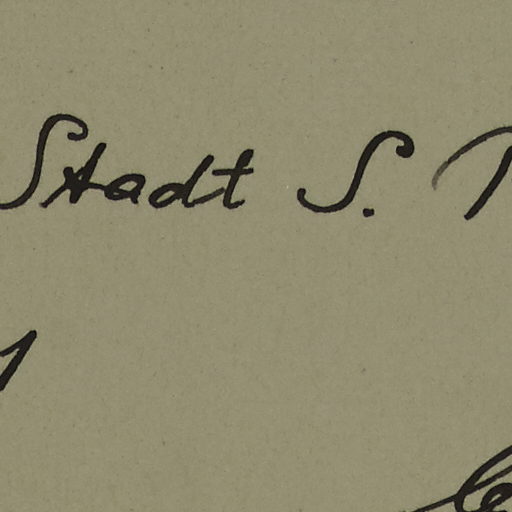 Stadt S.
1